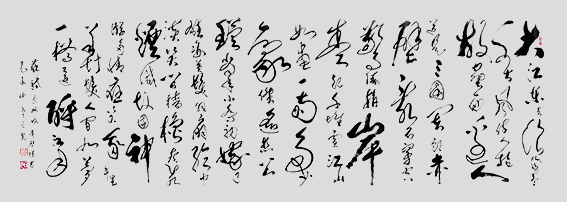 大江東去浪淘盡
千古風流人物
故壘西邊人
道是三國周郎赤
壁亂石穿空
驚濤拍岸
捲起千堆雪江山
如畫一時多少
豪傑遙想公
瑾當年小喬初嫁
了雄姿英發羽扇綸巾
談笑間檣櫓灰飛
煙滅故國神
遊多情應笑我早生
華髮人間如夢
一樽還酹江月
蘇軾